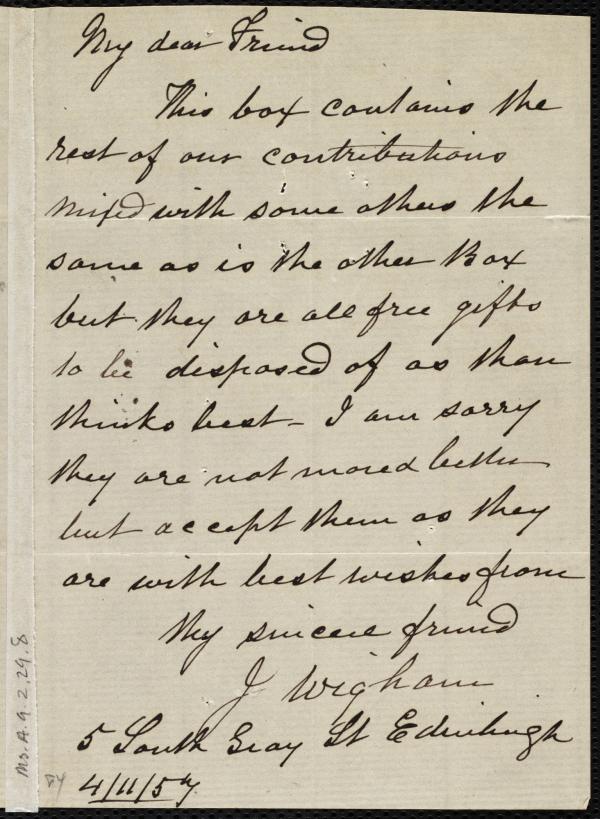 My dear Friend
This box contains the
rest of our contributions
mixed with some others the
same as is the other Box
but they are all free gifts
to be disposed of as thou
thinks best - I am sorry
they are not moved better
but accept them as they
are with best wishes from
thy sincere friend
J Wigham
5 South Gray St Edinburgh
4/11/57
Ms. A. 9. 2. 29. 8